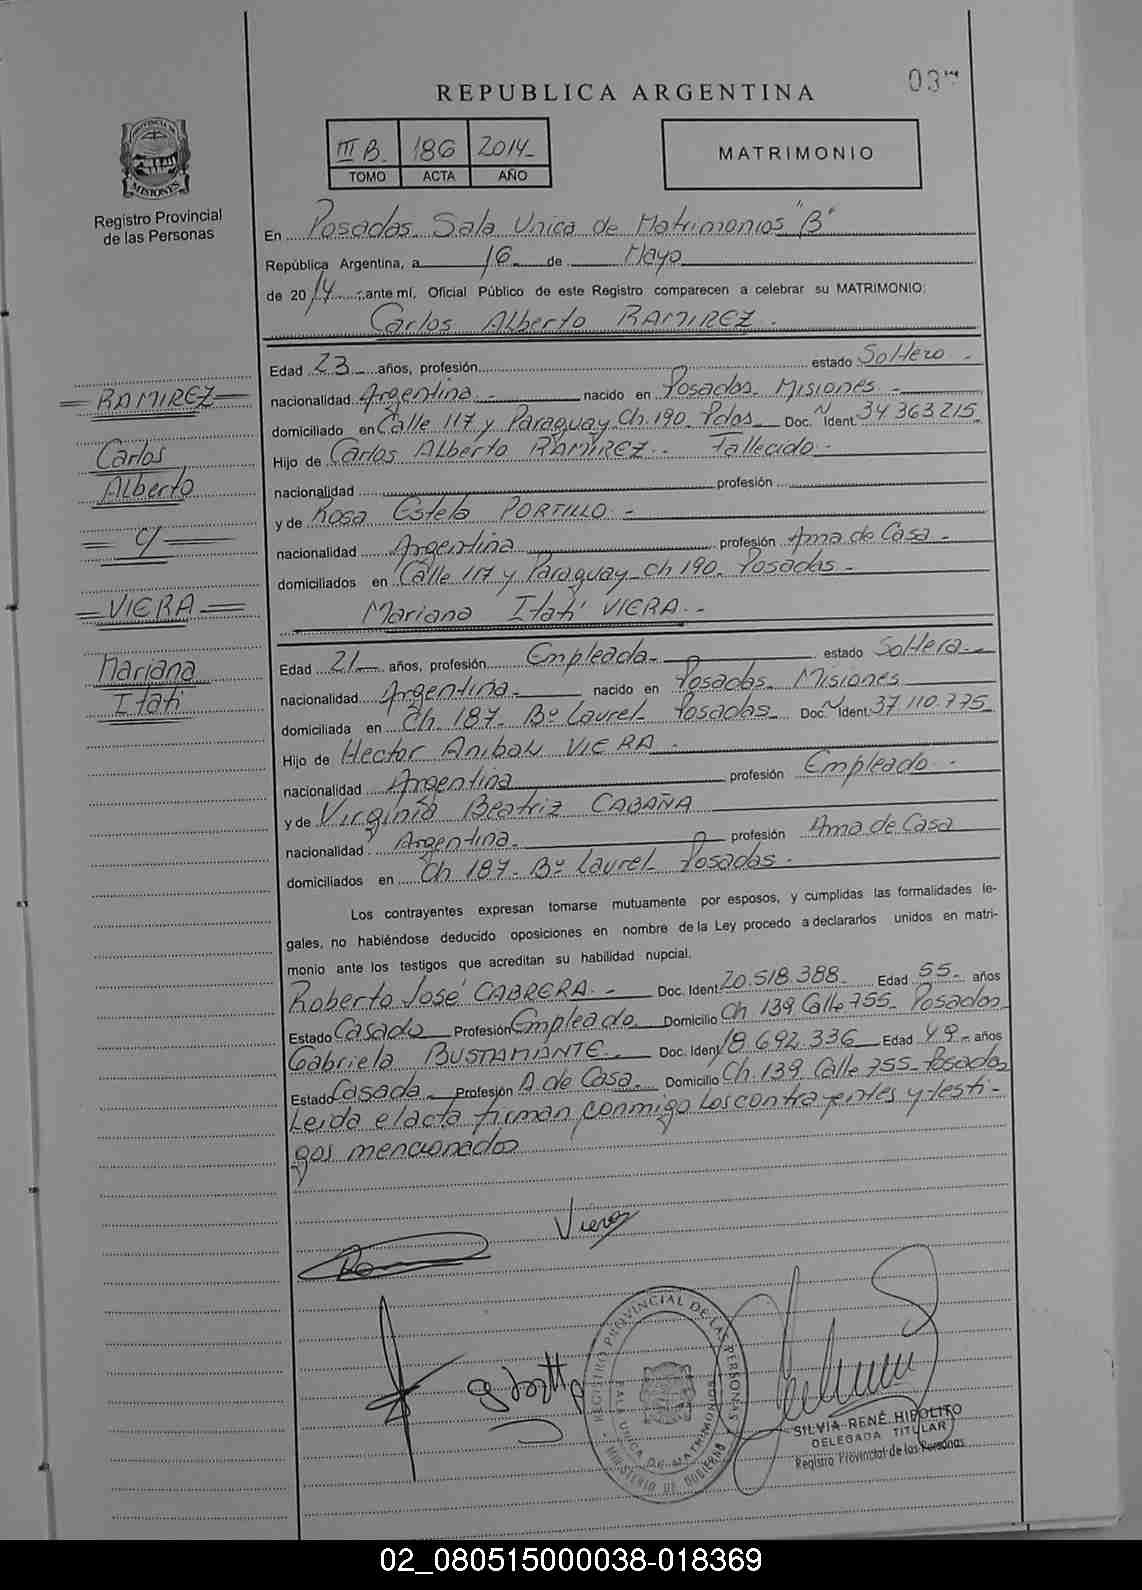 REPUBLICA ARGENTINA
PROVINCIA DE
MISIONES
Registro Provincial
de las Personas
III B. 186 2014-
TOMO ACTA AÑO
MATRIMONIO
En Posadas. Sala Unica de Matrimonios "B"
República Argentina, a 16 de Mayo
de 2014 ante mí, Oficial Público de este Registro comparecen a celebrar su MATRIMONIO:
Carlos Alberto RAMIREZ.
Edad 23 años, profesión estado Soltero -
nacionalidad Argentina. - nacido en Posadas. Misiones -
domiciliado en Calle 117 y Paraguay Ch. 190. Pdas. Doc. Nº Ident. 34 363 215
Hijo de Carlos Alberto RAMIREZ. - Fallecido -
nacionalidad profesión
y de Rosa Estela PORTILLO. -
nacionalidad Argentina profesión Ama de Casa -
domiciliados en Calle 117 y Paraguay Ch 190. Posadas -
Mariana Itatí VIERA. -
Edad 21 años, profesión Empleada - estado Soltera -
nacionalidad Argentina. nacido en Posadas. Misiones
domiciliada en Ch. 187. Bº Laurel - Posadas - Doc. Nº Ident. 37 110.775
Hijo de Hector Anibal VIERA -
nacionalidad Argentina profesión Empleado -
y de Virginia Beatriz CABAÑA
nacionalidad Argentina. profesión Ama de Casa
domiciliados en Ch 187 - Bº Laurel - Posadas -
Los contrayentes expresan tomarse mutuamente por esposos, y cumplidas las formalidades le-
gales, no habiéndose deducido oposiciones en nombre de la Ley procedo a declararlos unidos en matri-
monio ante los testigos que acreditan su habilidad nupcial.
Roberto José CABRERA. - Doc. Ident. 20.518.388 Edad 55 - años
Estado Casado Profesión Empleado. Domicilio Ch 139 Calle 755 - Posadas
Gabriela BUSTAMANTE. Doc. Ident. 18 692.336 Edad 49 - años
Estado Casada. Profesión A. de Casa. Domicilio Ch. 139 Calle 755 - Posadas
Leida el acta firman conmigo los contrayentes y testi-
gos mencionados
RAMIREZ
Carlos
Alberto
c/
VIERA
Mariana
Itatí
Viera
REGISTRO PROVINCIAL DE LAS PERSONAS
SALA UNICA DE MATRIMONIOS
MINISTERIO DE GOBIERNO
SILVIA RENÉ HIPOLITO
DELEGADA TITULAR
Registro Provincial de las Personas
02_080515000038-018369